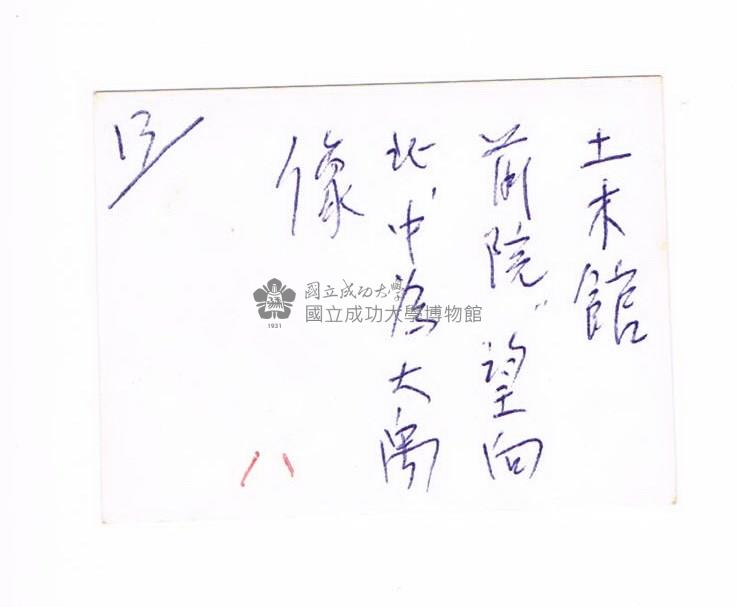 土木館
前院,望向
北,中為大禹
像
13
八
國立成功大學
國立成功大學博物館
1931